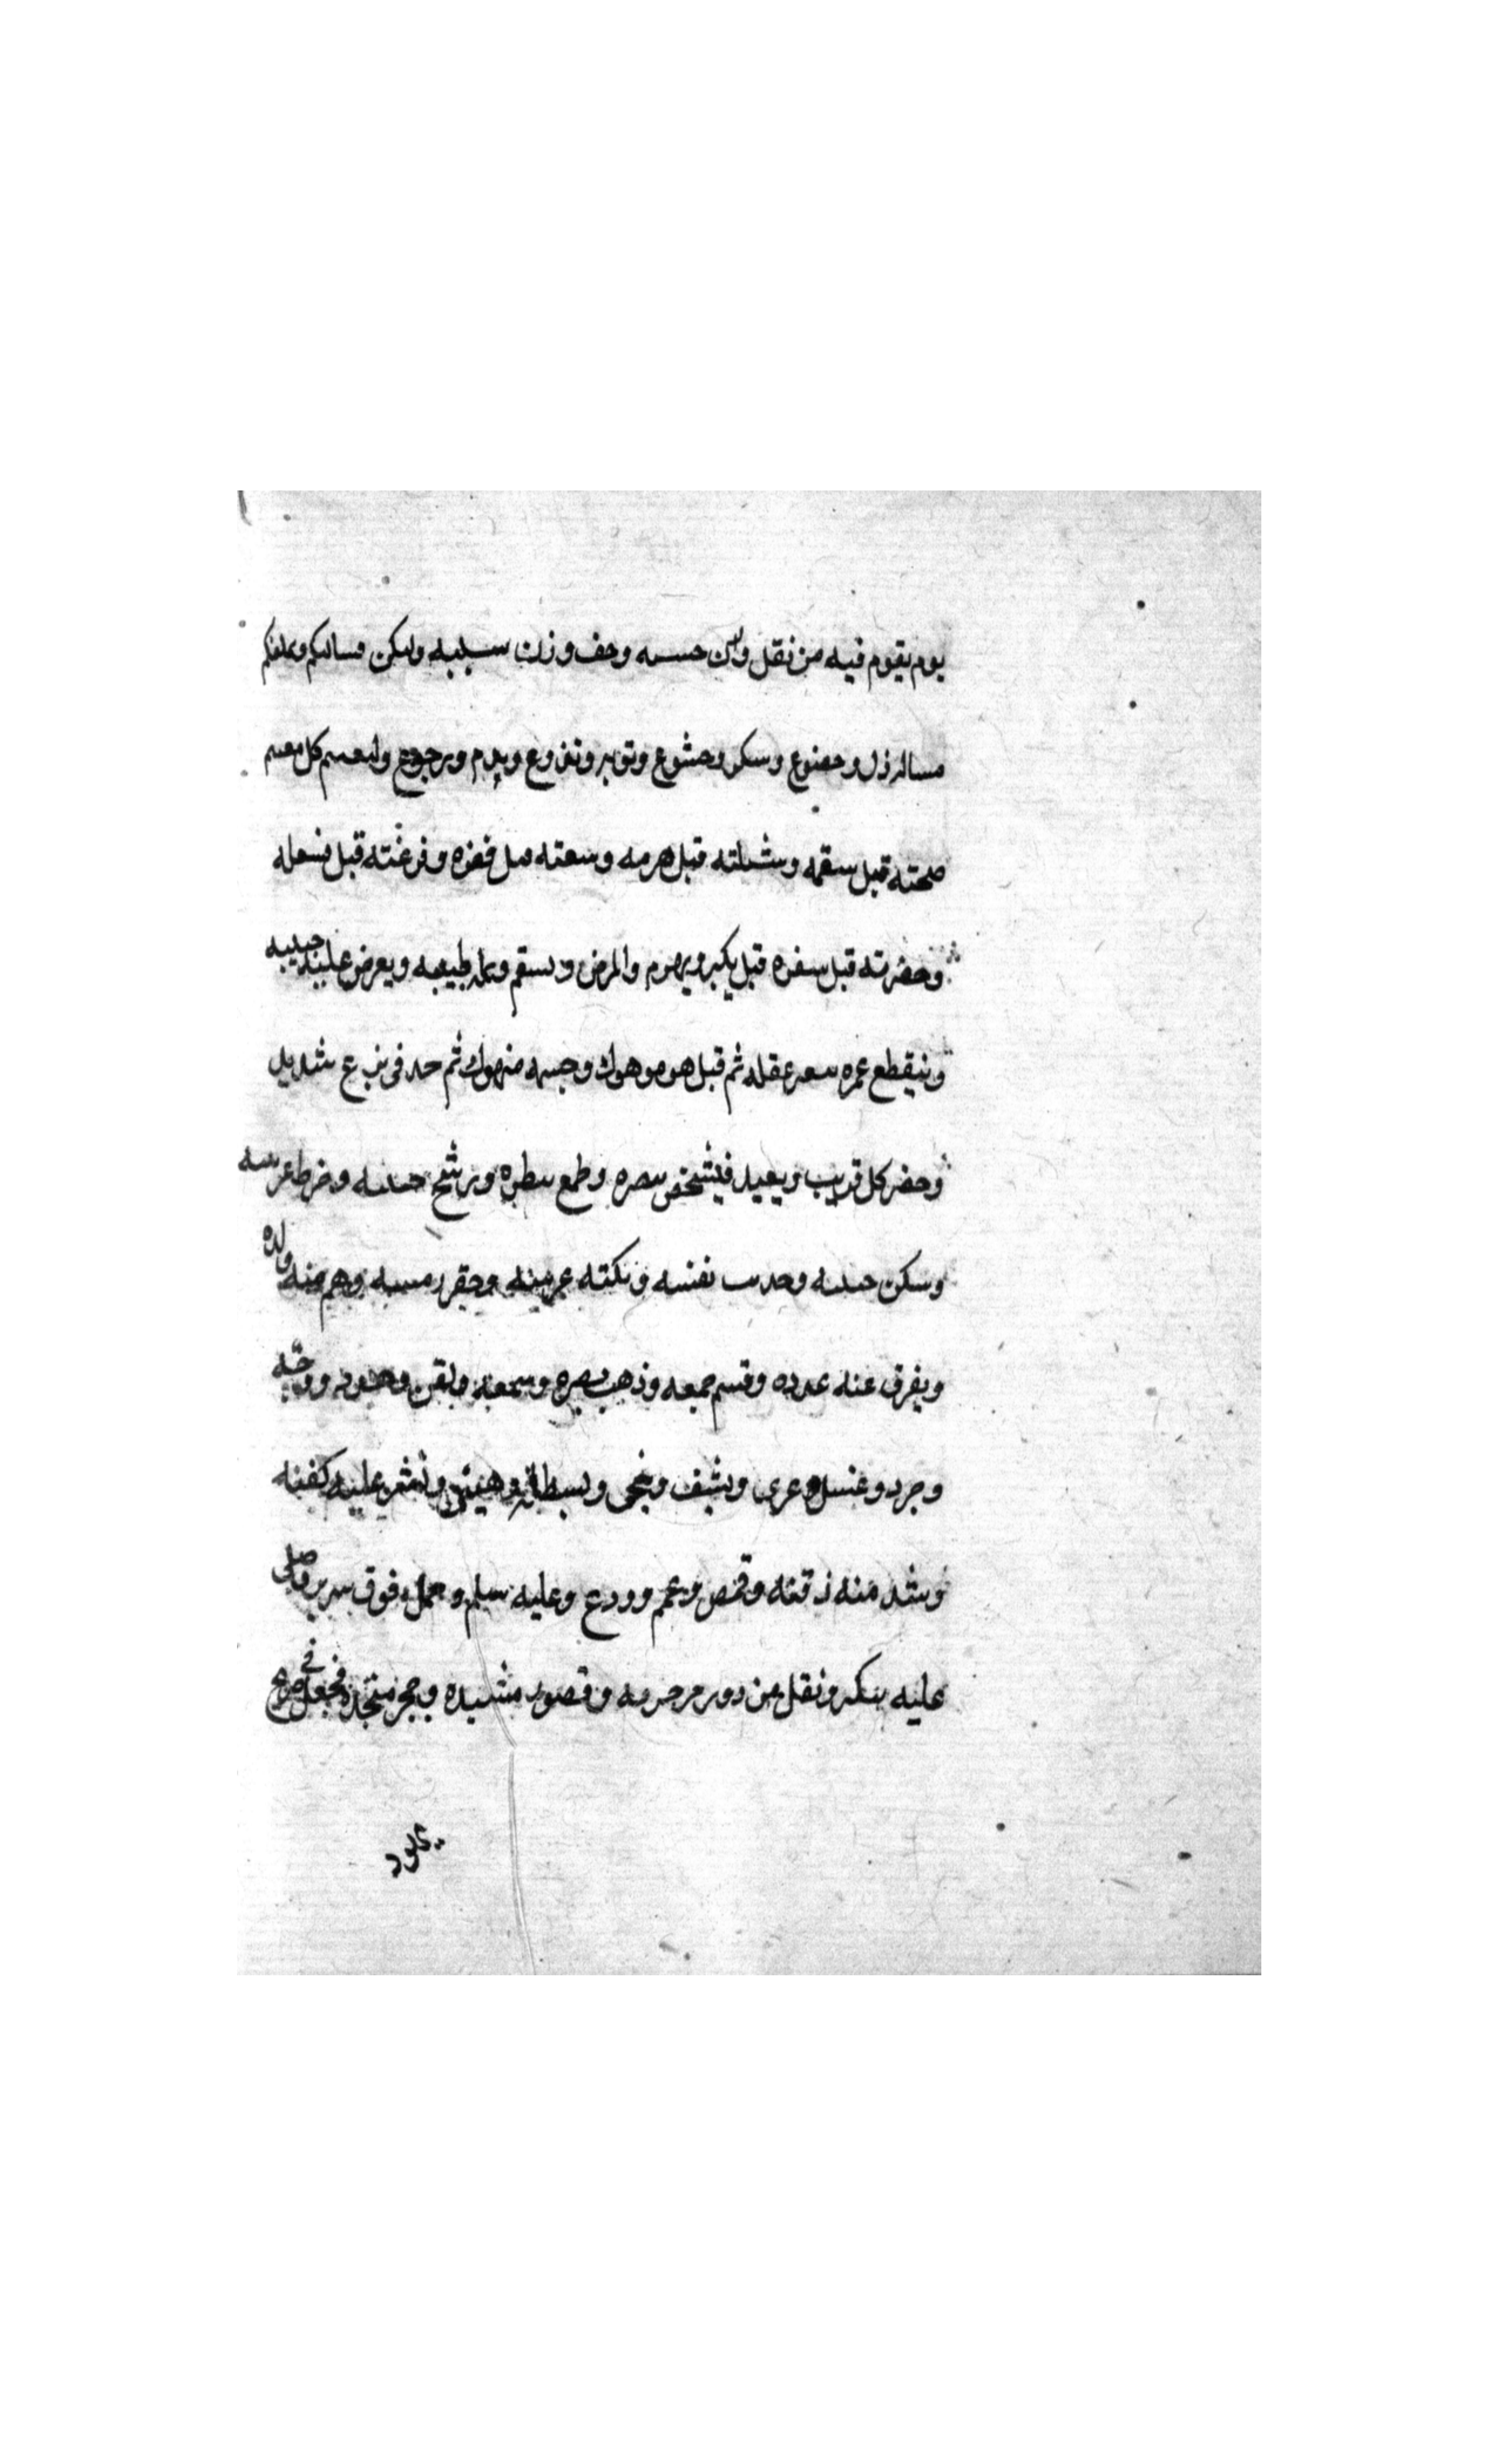 يوم يقوم فيه من ثقل وزن حسنه وخف وزن سيئه وليكن مسالتكم وتملقكم
مسالة ذل وخضوع وشكر وخشوع وتوبة ونزوع وندم ورجوع وليغتنم كل مغتنم
صحته قبل سقمه وشبابته قبل هرمه وسعته قبل فقره وفرغته قبل شغله
وحضرته قبل سفره قبل يكبر ويهرم والمرض ويسقم ويمله طبيبه ويعرض عليه حبيبه
وينقطع عمره عقله ثم قبل هو موهوك وجسمه منهوك ثم جد في نزع شديد
وحضر كل قريب وبعيد فيشخص بصره وطمح بنظره ورشح جبينه
وسكن حنينه نفسه وبكته عرسه وحفر رمسه ويتم منه ولده
ويفرق عنه عدده وقسم جمعه وذهب بصره وسمعه
وجرد وغسل وعري ونشف وسجي وبسط له ونشر عليه كفنه
وشد منه ذقنه وقمص وعمم وودع وعليه سلم وحمل فوق سرير وصلي
عليه بتكبير ونقل من دور مزخرفة وقصور مشيدة وحجر منجدة فجعل في ضريح